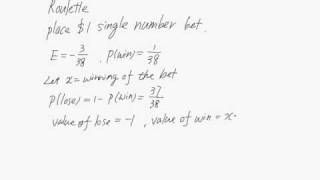 Roulette
place $1 single number bet.
E = -3/38 , P(win) = 1/38
Let x = winning of the bet
P(lose) = 1 - P(win) = 37/38
value of lose = -1 , value of win = x.